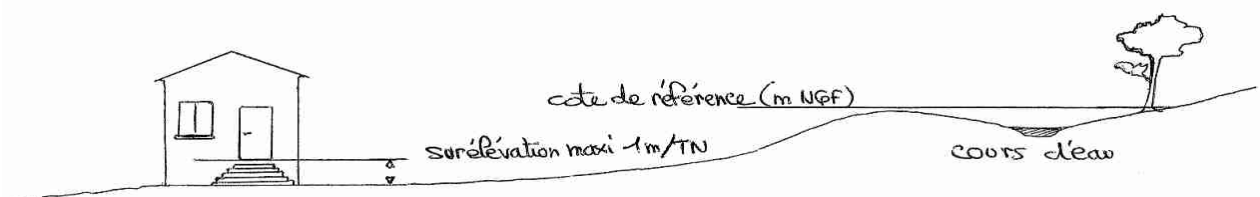 cote de référence (m NGF)
surélévation maxi 1m/TN
cours d'eau